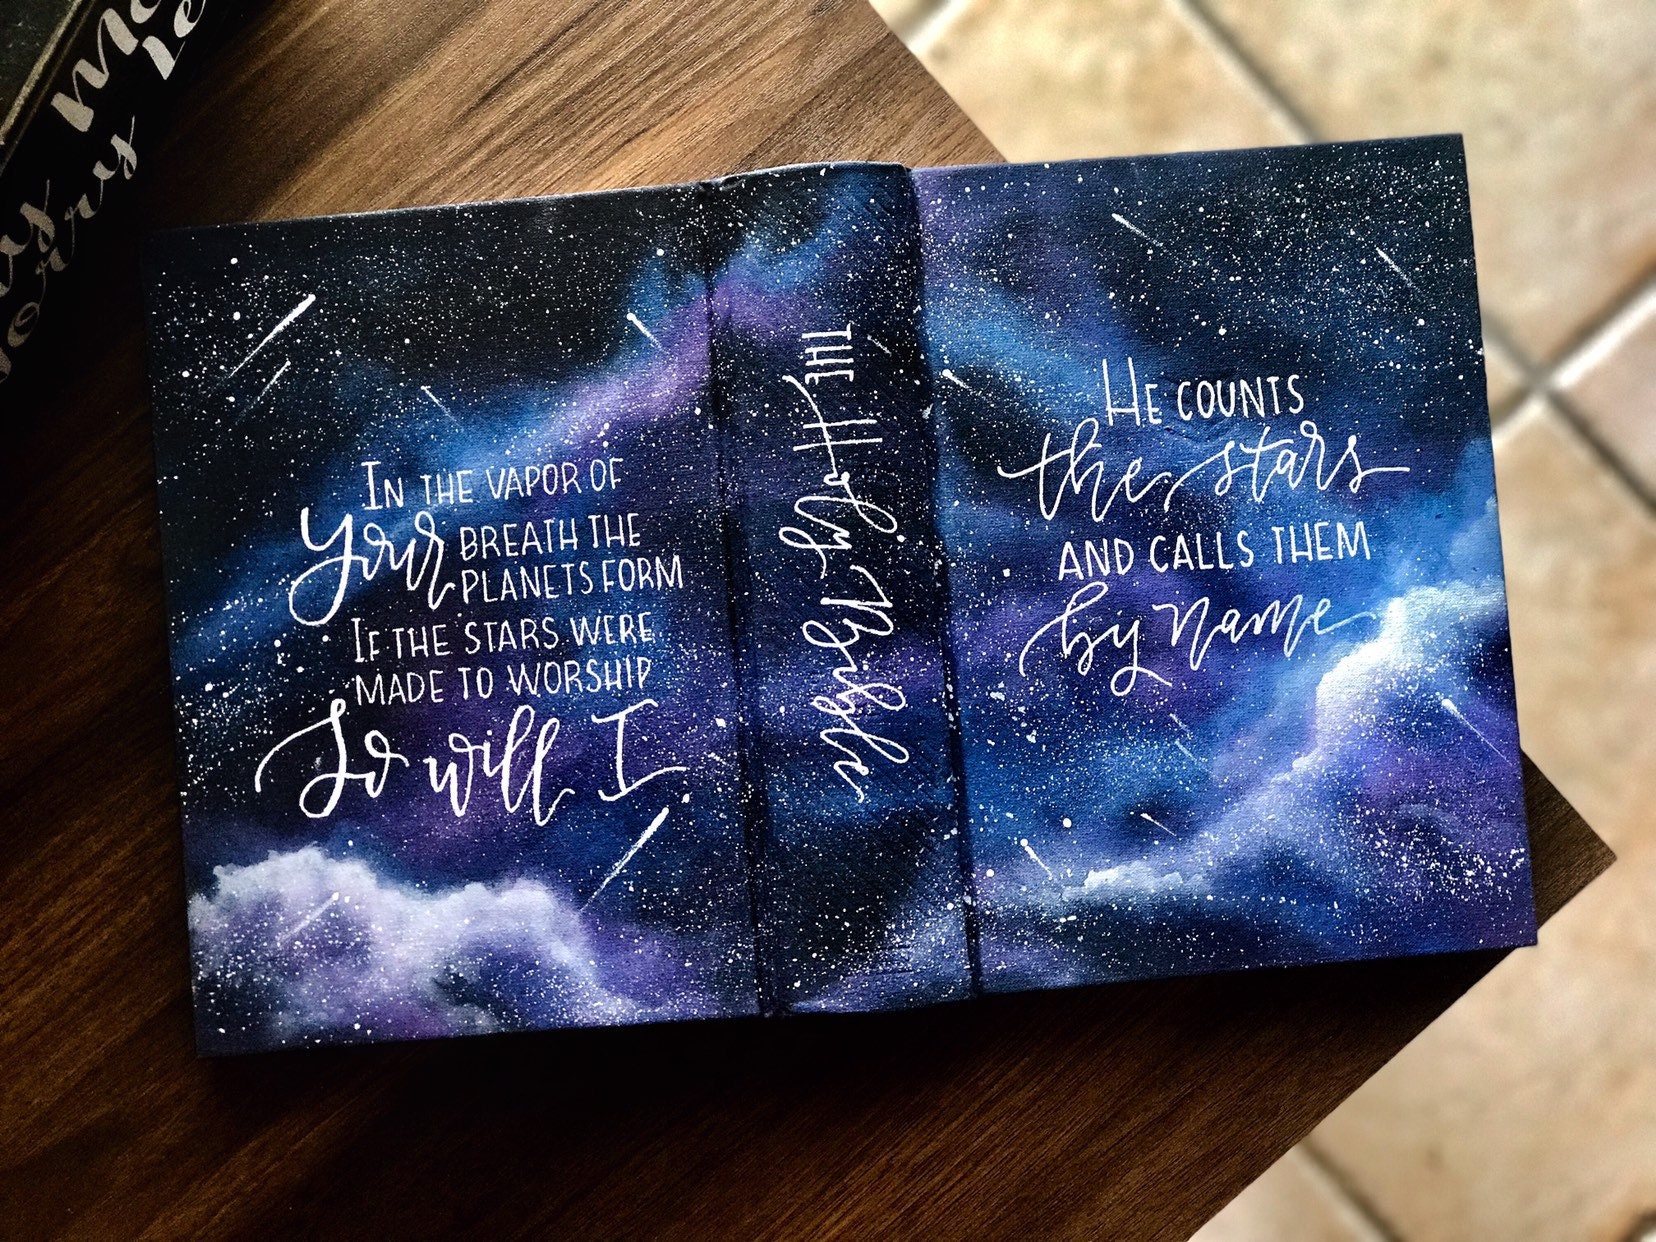 In the vapor of
Your breath the
planets form
If the stars were
made to worship
So will I
The Holy Bible
He counts
the stars
and calls them
by name